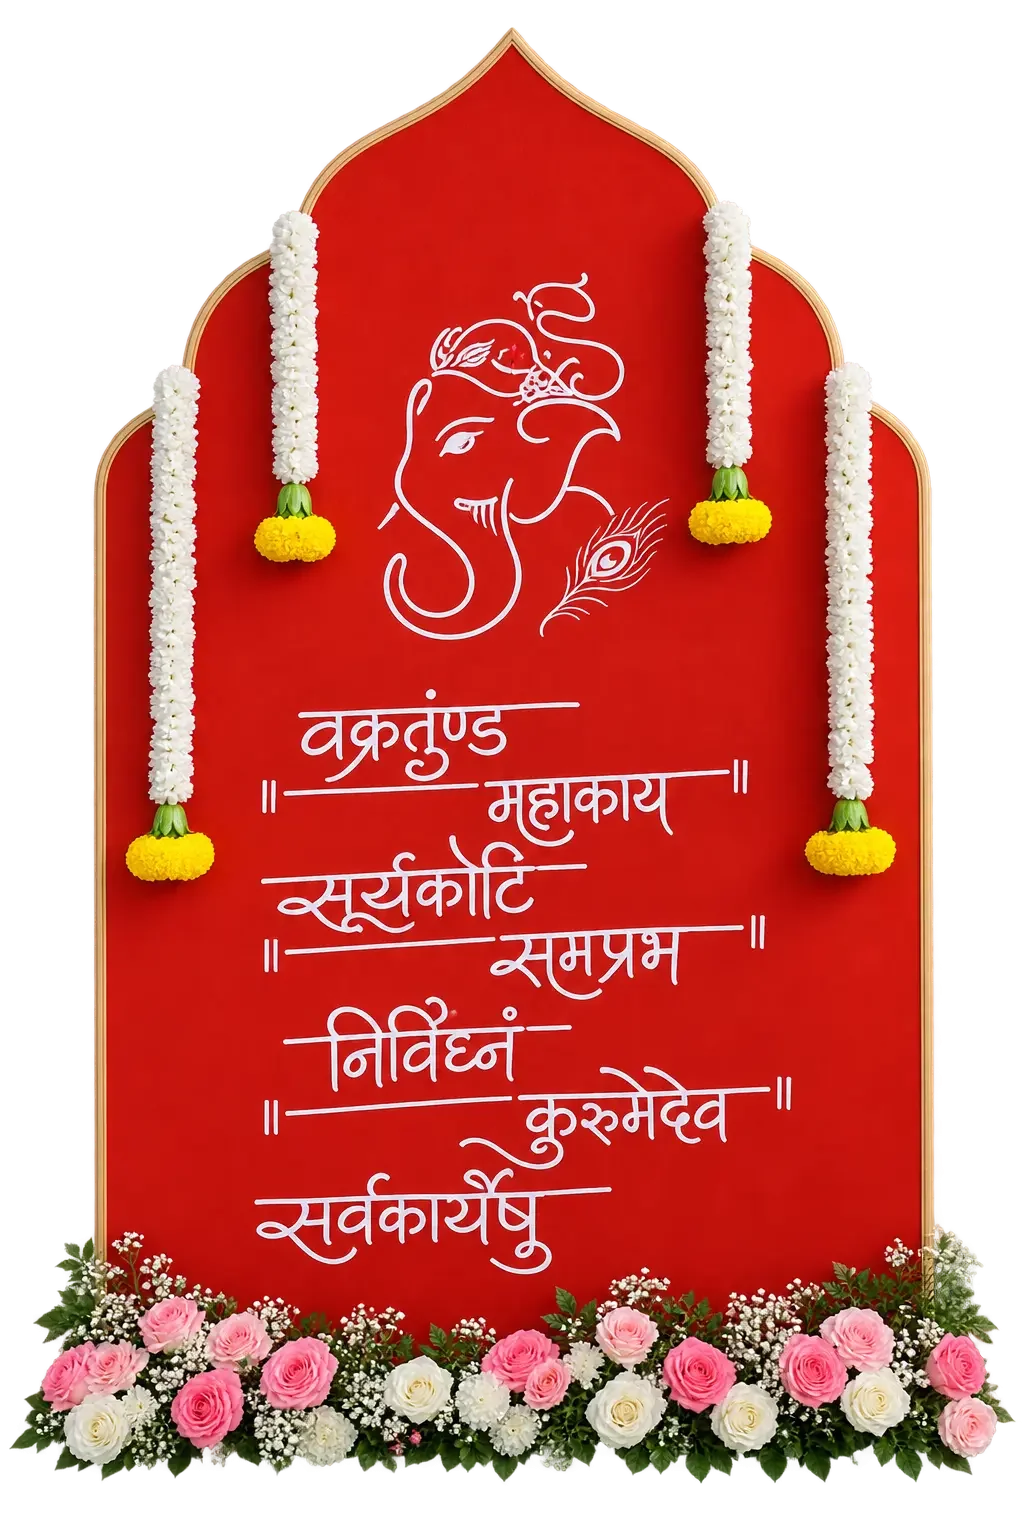 वक्रतुंण्ड
॥ महाकाय ॥
सूर्यकोटि
॥ समप्रभ ॥
निर्विघ्नं
॥ कुरुमेदेव ॥
सर्वकार्येषु